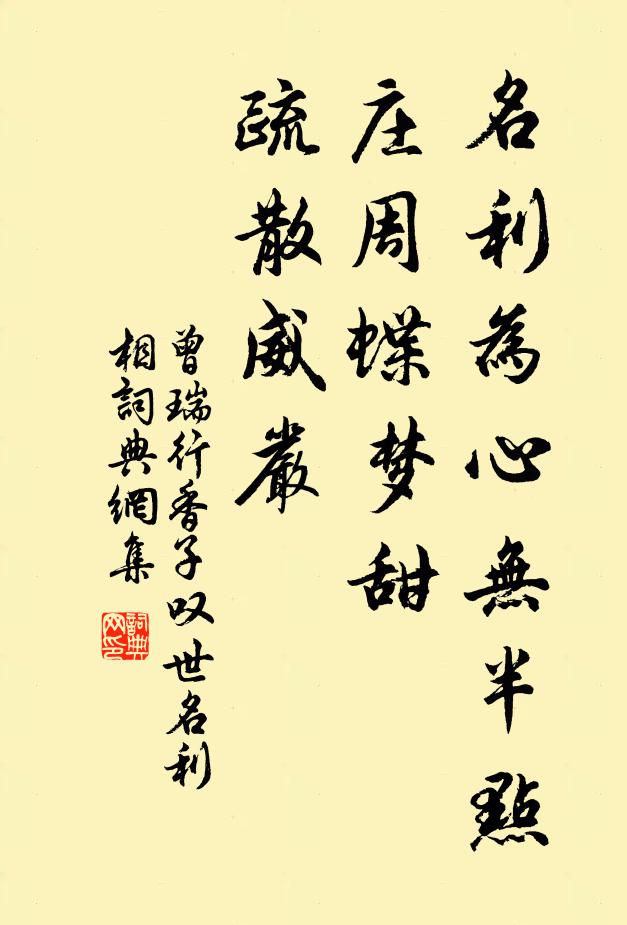 名利為心無半點
庄周蝶梦甜
疏散威嚴
曾瑞行香子叹世名利
相詞典網集
詞典
网印